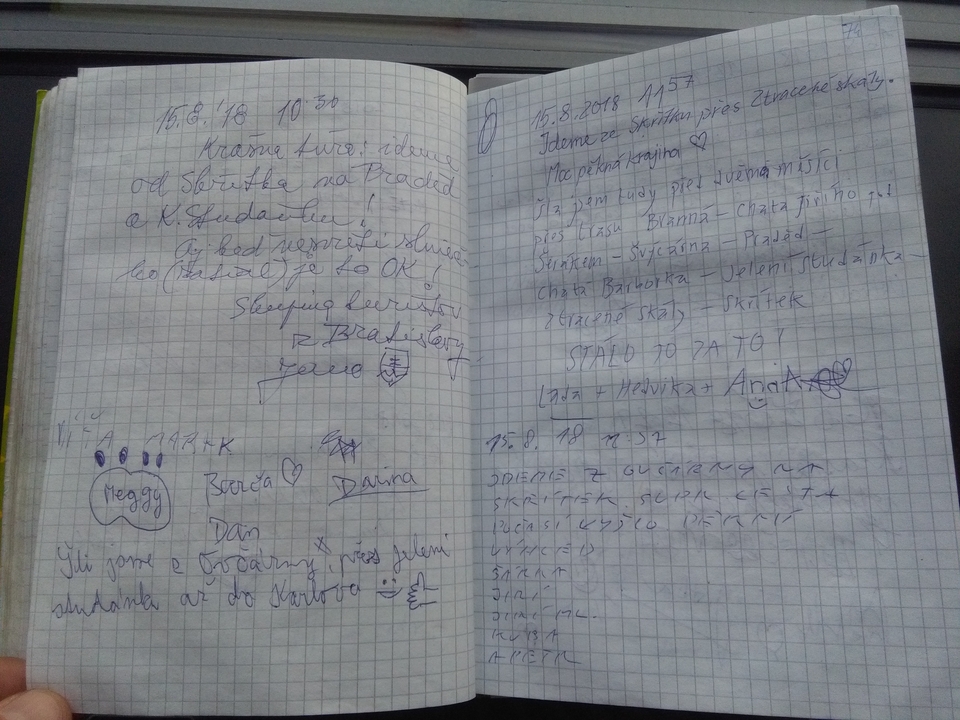 15.8.'18 10:30
Krásna túra: ideme
od Skrítka na Praded
a K. Studánku!
Aj keď nesvieti slnieč
ko (zatiaľ) je to OK!
Sleeping turistov
z Bratislavy
Jano
Víťa Marek
Meggy Barča Darina
Dan
Šli jsme z Ovčárny přes Jelení
studánka až do Karlova
74
15.8.2018 11:57
Jdeme ze Skřítku přes Ztracené skály.
Moc pěkná krajina ♡
Šla jsem tudy před dvěma měsíci
přes trasu Branná - Chata Jiřího pod
Šerákem - Švýcárna - Praděd -
Chata Barborka - Jelení studánka -
Ztracené skály - Skřítek
STÁLO TO ZA TO!
Laďa + Hedvika +
15.8. 18
JDEME Z OVČÁRNY NA
SKŘÍTEK SUPR CESTA
POČASÍ VYŠLO PĚKNÉ
VÝHLEDY
ŠÁRKA
JIŘÍ
JIŘÍ ML.
KUBA
A PETR